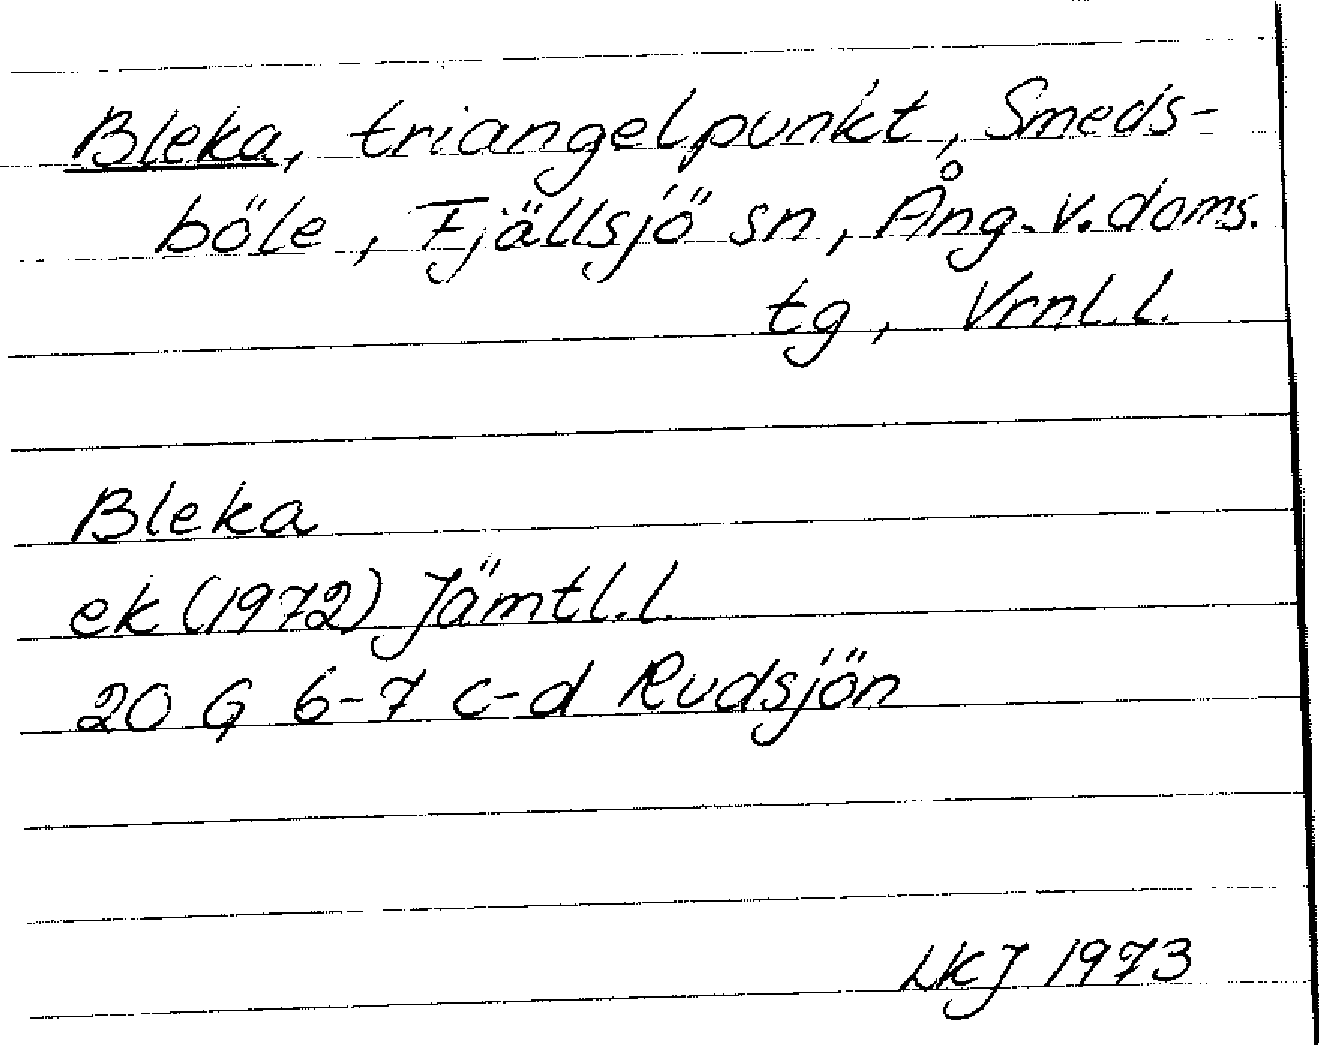 Bleka, triangelpunkt, Smeds-
böle, Fjällsjö sn, Ång. v. doms.
tg, Vrnl. l.
Bleka
ek (1972) Jämtl. l.
20 G 6-7 c-d Rudsjön
LKJ 1973